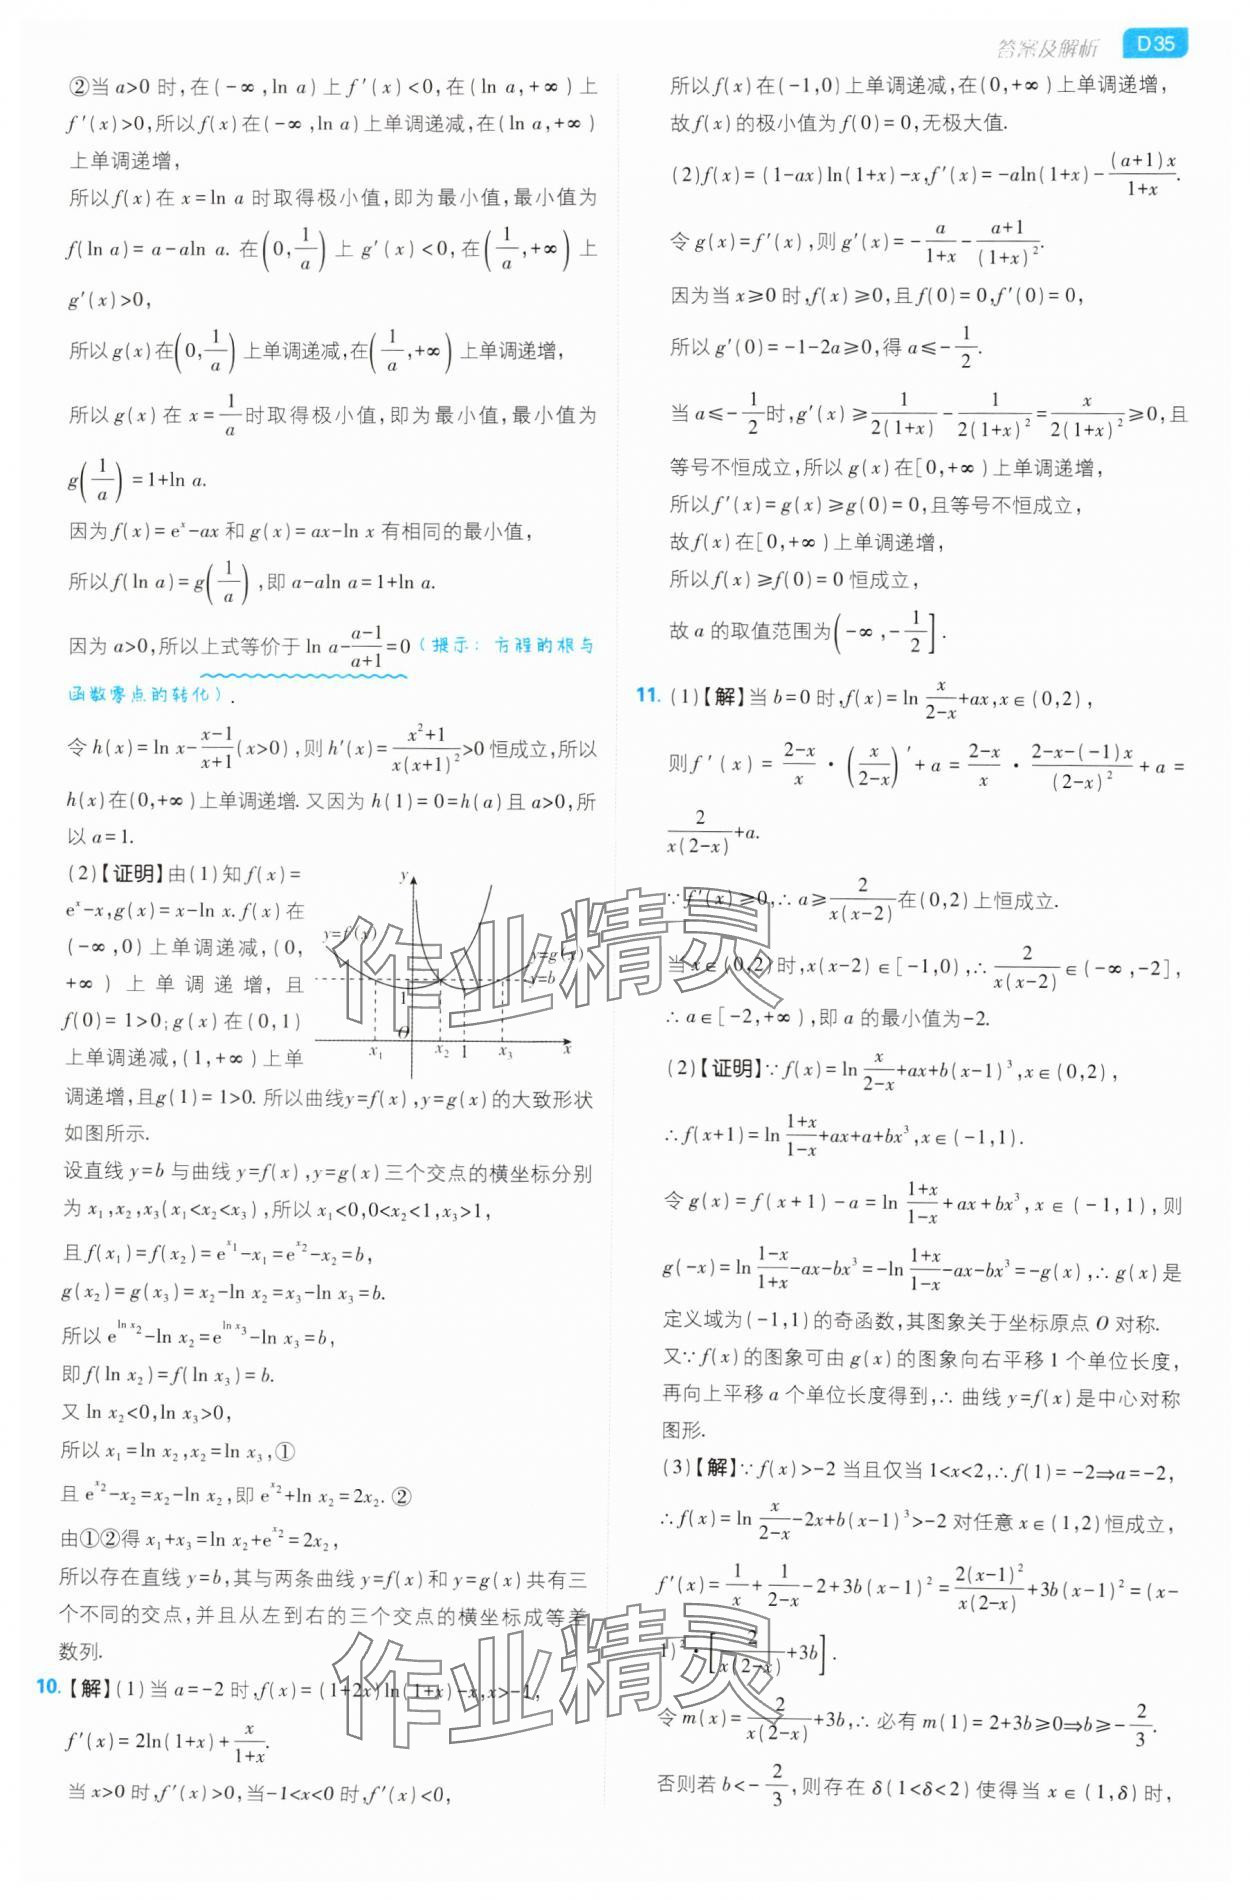 答案及解析 D35
②当 a>0 时,在(-∞,ln a)上 f′(x)<0,在(ln a,+∞)上
f′(x)>0,所以f(x)在(-∞,ln a)上单调递减,在(ln a,+∞)
上单调递增,
所以f(x)在 x=ln a 时取得极小值,即为最小值,最小值为
f(ln a)=a-aln a. 在(0,1/a)上 g′(x)<0,在(1/a,+∞)上
g′(x)>0,
所以 g(x)在(0,1/a)上单调递减,在(1/a,+∞)上单调递增,
所以 g(x)在 x=1/a时取得极小值,即为最小值,最小值为
g(1/a)=1+ln a.
因为f(x)=eˣ-ax 和 g(x)=ax-ln x 有相同的最小值,
所以f(ln a)=g(1/a),即 a-aln a=1+ln a.
因为 a>0,所以上式等价于 ln a-(a-1)/(a+1)=0(提示:方程的根与
函数零点的转化).
令 h(x)=ln x-(x-1)/(x+1)(x>0),则 h′(x)=(x²+1)/(x(x+1)²)>0 恒成立,所以
h(x)在(0,+∞)上单调递增. 又因为 h(1)=0=h(a)且 a>0,所
以 a=1.
(2)【证明】由(1)知 f(x)=
eˣ-x,g(x)=x-ln x. f(x)在
(-∞,0)上单调递减,(0,
+∞)上单调递增,且
f(0)=1>0;g(x)在(0,1)
上单调递减,(1,+∞)上单
y
y=f(x)
y=g(x)
y=b
1
O
x₁ x₂ 1 x₃ x
调递增,且g(1)=1>0. 所以曲线y=f(x),y=g(x)的大致形状
如图所示.
设直线 y=b 与曲线 y=f(x),y=g(x)三个交点的横坐标分别
为 x₁,x₂,x₃(x₁<x₂<x₃),所以 x₁<0,0<x₂<1,x₃>1,
且 f(x₁)=f(x₂)=e^{x₁}-x₁=e^{x₂}-x₂=b,
g(x₂)=g(x₃)=x₂-ln x₂=x₃-ln x₃=b.
所以 e^{ln x₂}-ln x₂=e^{ln x₃}-ln x₃=b,
即 f(ln x₂)=f(ln x₃)=b.
又 ln x₂<0,ln x₃>0,
所以 x₁=ln x₂,x₂=ln x₃,①
且 e^{x₂}-x₂=x₂-ln x₂,即 e^{x₂}+ln x₂=2x₂. ②
由①②得 x₁+x₃=ln x₂+e^{x₂}=2x₂,
所以存在直线 y=b,其与两条曲线 y=f(x)和 y=g(x)共有三
个不同的交点,并且从左到右的三个交点的横坐标成等差
数列.
10.【解】(1)当 a=-2 时,f(x)=(1+2x)ln(1+x)-x,x>-1,
f′(x)=2ln(1+x)+x/(1+x).
当 x>0 时,f′(x)>0,当-1<x<0时,f′(x)<0,
所以 f(x)在(-1,0)上单调递减,在(0,+∞)上单调递增,
故 f(x)的极小值为 f(0)=0,无极大值.
(2)f(x)=(1-ax)ln(1+x)-x,f′(x)=-aln(1+x)-(a+1)x/(1+x).
令 g(x)=f′(x),则 g′(x)=-a/(1+x)-(a+1)/(1+x)².
因为当 x≥0 时,f(x)≥0,且 f(0)=0,f′(0)=0,
所以 g′(0)=-1-2a≥0,得 a≤-1/2.
当 a≤-1/2时,g′(x)≥1/(2(1+x))-1/(2(1+x)²)=x/(2(1+x)²)≥0,且
等号不恒成立,所以 g(x)在[0,+∞)上单调递增,
所以 f′(x)=g(x)≥g(0)=0,且等号不恒成立,
故 f(x)在[0,+∞)上单调递增,
所以 f(x)≥f(0)=0 恒成立,
故 a 的取值范围为(-∞,-1/2].
11.(1)【解】当 b=0 时,f(x)=ln x/(2-x)+ax,x∈(0,2),
则 f′(x)=(2-x)/x·(x/(2-x))′+a=(2-x)/x·(2-x-(-1)x)/(2-x)²+a=
2/(x(2-x))+a.
∵f′(x)≥0,∴a≥2/(x(x-2))在(0,2)上恒成立.
当 x∈(0,2)时,x(x-2)∈[-1,0),∴2/(x(x-2))∈(-∞,-2],
∴a∈[-2,+∞),即 a 的最小值为-2.
(2)【证明】∵f(x)=ln x/(2-x)+ax+b(x-1)³,x∈(0,2),
∴f(x+1)=ln (1+x)/(1-x)+ax+a+bx³,x∈(-1,1).
令 g(x)=f(x+1)-a=ln (1+x)/(1-x)+ax+bx³,x∈(-1,1),则
g(-x)=ln (1-x)/(1+x)-ax-bx³=-ln (1+x)/(1-x)-ax-bx³=-g(x),∴g(x)是
定义域为(-1,1)的奇函数,其图象关于坐标原点 O 对称.
又∵f(x)的图象可由 g(x)的图象向右平移 1 个单位长度,
再向上平移 a 个单位长度得到,∴曲线 y=f(x)是中心对称
图形.
(3)【解】∵f(x)>-2 当且仅当 1<x<2,∴f(1)=-2⇒a=-2,
∴f(x)=ln x/(2-x)-2x+b(x-1)³>-2 对任意 x∈(1,2)恒成立,
f′(x)=1/x+1/(2-x)-2+3b(x-1)²=2(x-1)²/(x(2-x))+3b(x-1)²=(x-
1)²·[2/(x(2-x))+3b].
令 m(x)=2/(x(2-x))+3b,∴必有 m(1)=2+3b≥0⇒b≥-2/3.
否则若 b<-2/3,则存在 δ(1<δ<2)使得当 x∈(1,δ)时,
作业精灵
作业精灵